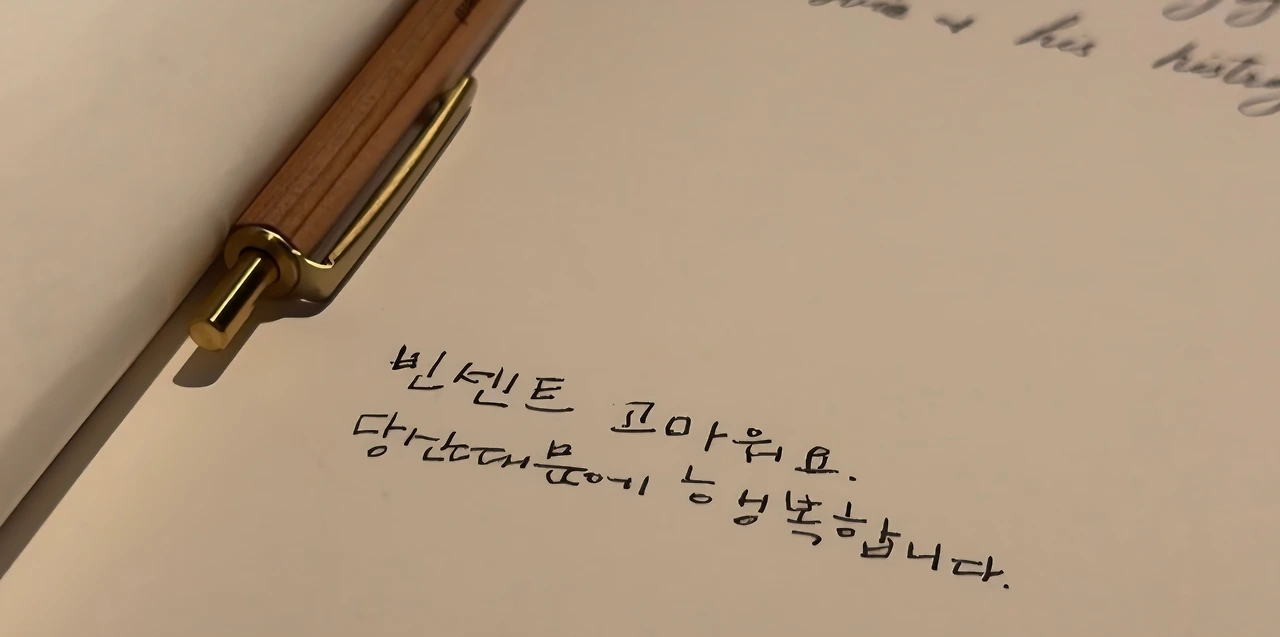 & his histry
빈센트 고마워요.
당신때문에 행복합니다.